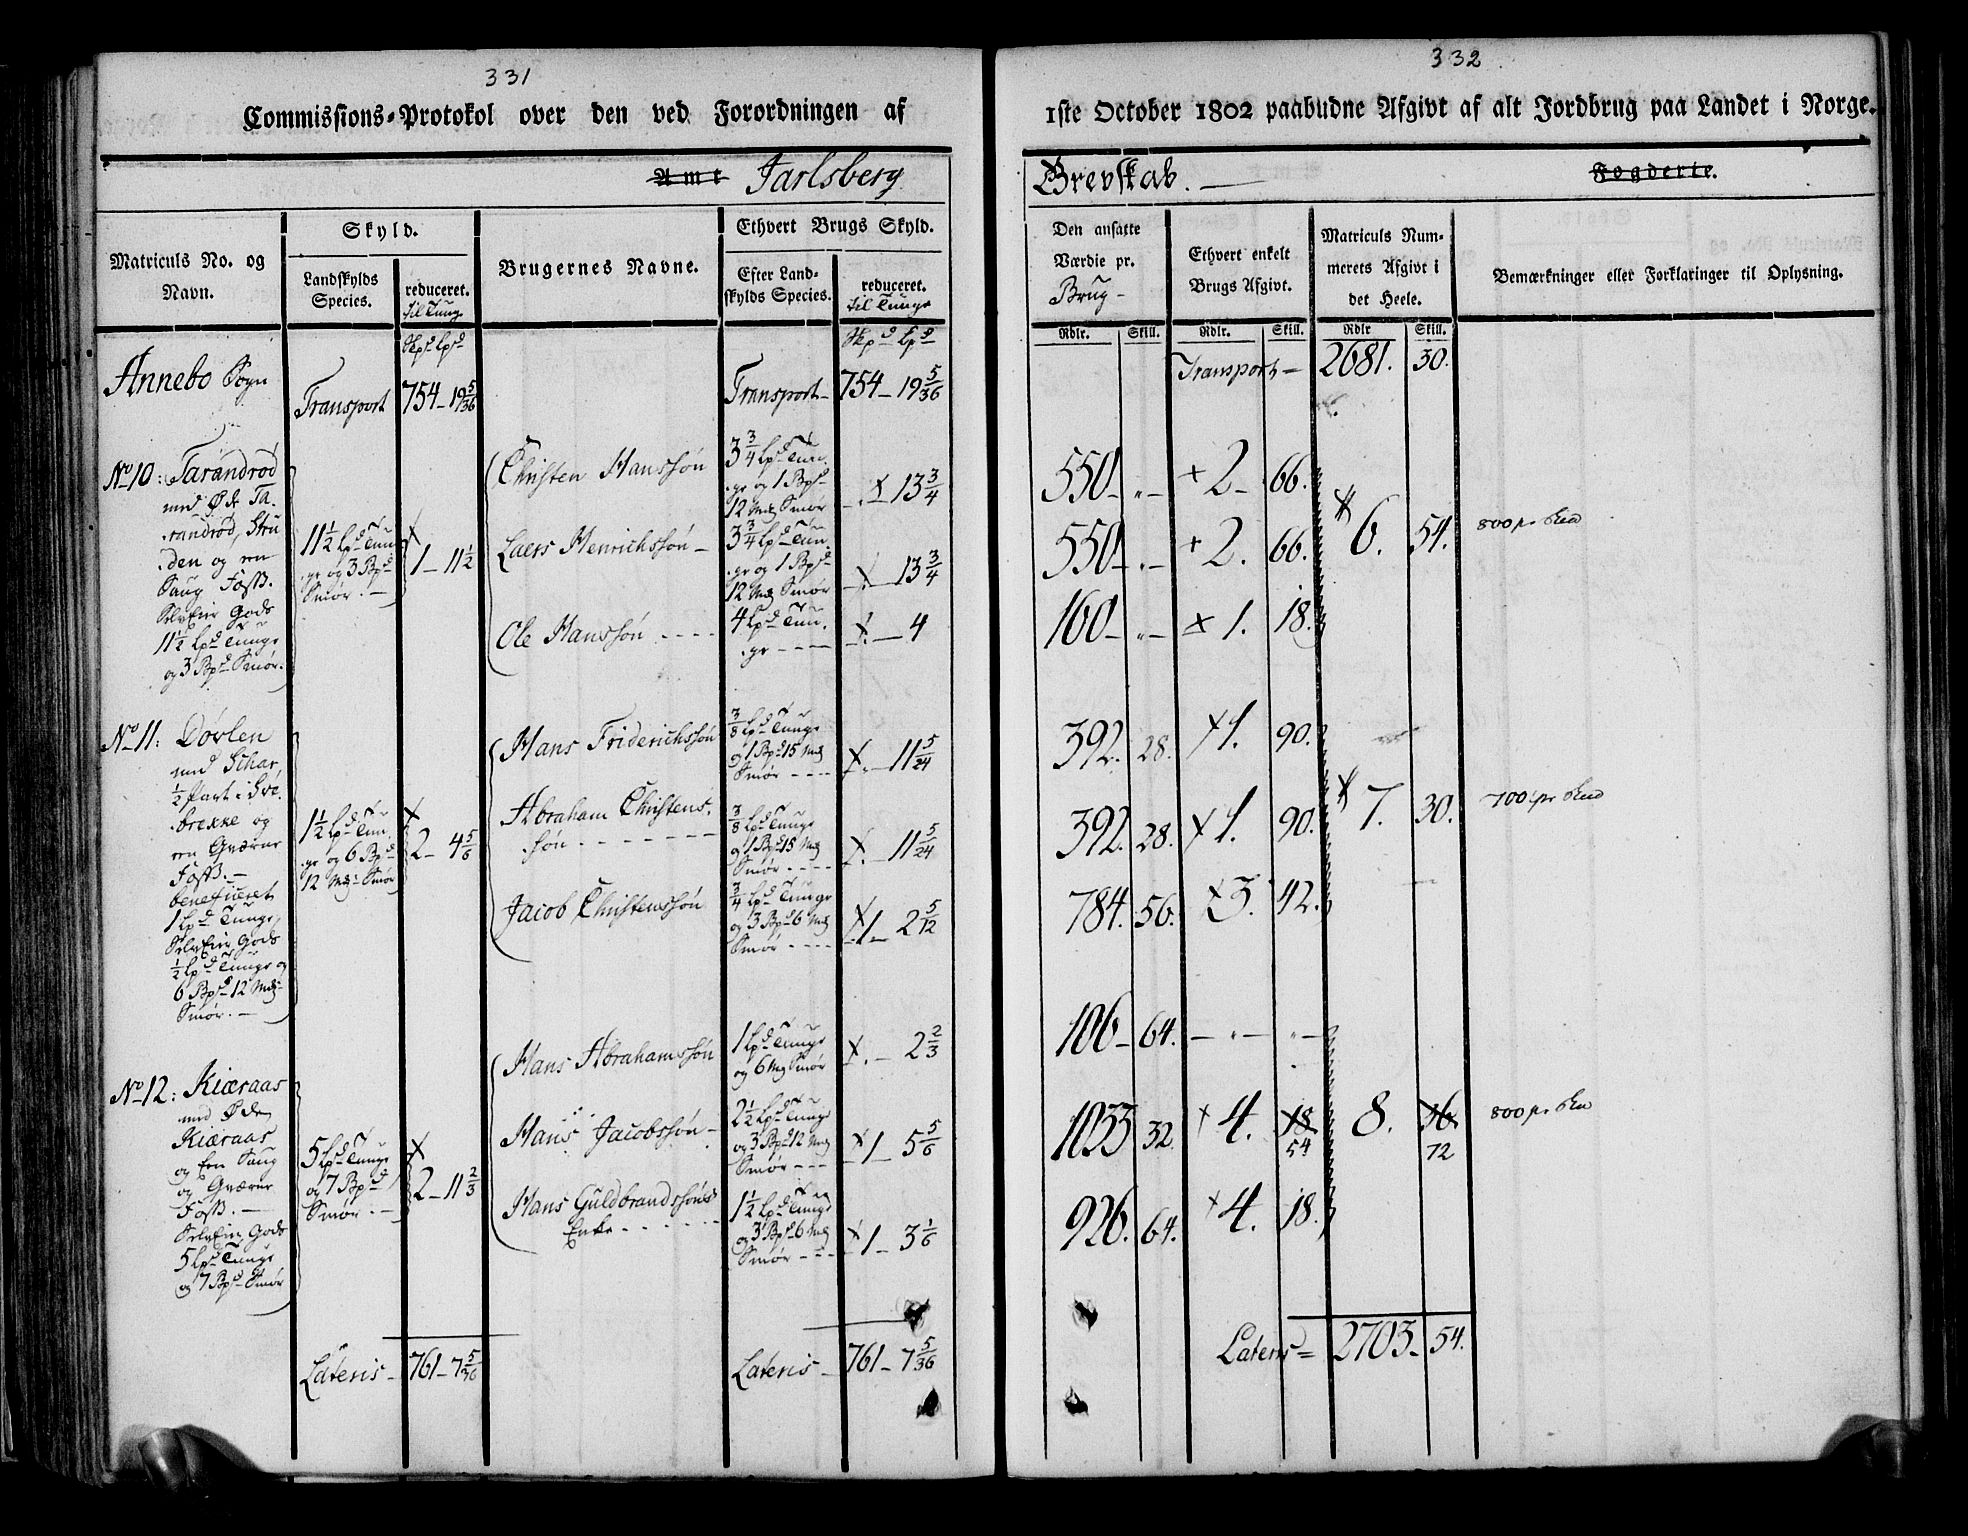 331
Commissions-Protokol over den ved Forordningen af
Amt Jarlsberg
Matriculs No. og Navn.
Skyld.
Landskylds Species.
reduceret.
til Tunge
Brugernes Navne.
Ethvert Brugs Skyld.
Efter Landskylds Species.
reduceret.
til Tunge
Skpd Lpd
Skpd Lpd
Annebo Sogn
Transport
754 - 19 5/36
Transport -
754 - 19 5/36
No 10: Tarandrød
med Øde Ta-
randrød, Stru
den og een
Saug Foss.
SelvEier Gods
11 1/2 Lpd Tunge
og 3 Bpd Smør.
11 1/2 Lpd Tun
ge og 3 Bpd
Smør. -
1 - 11 1/2
Christen Hanssøn
3 3/4 Lpd Tun
ge og 1 Bpd
12 Mk Smør
13 3/4
Laers Henrichssøn -
3 3/4 Lpd Tun
ge og 1 Bpd
12 Mk Smør
13 3/4
Ole Hanssøn
4 Lpd Tun
ge
4
No 11: Dørlen
med Schar
1/2 Part i
brekke og
een Qværne
Foss. -
beneficeret
1 Lpd Tunge,
SelvEier Gods
1/2 Lpd Tunge og
6 Bpd 12 Mk
Smør. -
1 1/2 Lpd Tun
ge og 6 Bpd
12 Mk Smør
2 - 4 5/6
Hans Friderichssøn
3/8 Lpd Tunge
og 1 Bpd 15 Mk
Smør
11 5/24
Abraham Christens
søn
3/8 Lpd Tunge
og 1 Bpd 15 Mk
Smør
11 5/24
Jacob Christenssøn
3/4 Lpd Tunge
og 3 Bpd 6 Mk
Smør
1 - 2 5/12
No 12: Kiæraas
med Øde
Kiæraas
og Een Saug
og Qværne
Foss. -
SelvEier Gods
5 Lpd Tunge
og 7 Bpd Smør
5 Lpd Tunge
og 7 Bpd
Smør. -
2 - 11 2/3
Hans Abrahamssøn
1 Lpd Tunge
og 6 Mk Smør
2 2/3
Hans Jacobssøn -
2 1/2 Lpd Tunge
og 3 Bpd 12 Mk
Smør
1 - 5 5/6
Hans Guldbrandssøns
Enke
1 1/2 Lpd Tunge
og 3 Bpd 6 Mk
Smør
1 - 3 1/6
Lateris -
761 - 7 5/36
Lateris -
761 - 7 5/36
332
1ste October 1802 paabudne Afgivt af alt Jordbrug paa Landet i Norge.
Grevskab.
Fogderie.
Den ansatte Værdie pr.
Brug -
Ethvert enkelt Brugs Afgivt.
Matriculs Nummerets Afgivt i det Heele.
Bemærkninger eller Forklaringer til Oplysning.
Rdlr. Skill. Rdlr. Skill. Rdlr Skill.
Transport - 2681. 30.
550 - " - + 2 - 66.
550 - " - + 2. 66. 6. 54.
160 - " - 1. 18.
392. 28. 1. 90.
392. 28. 1. 90. 7. 30.
784. 56. 3. 42.
106 - 64. - " - " -
1033 32. 4. 18 54 8. 36 72
926. 64. 4. 18.
Lateris = 2703 - 54.